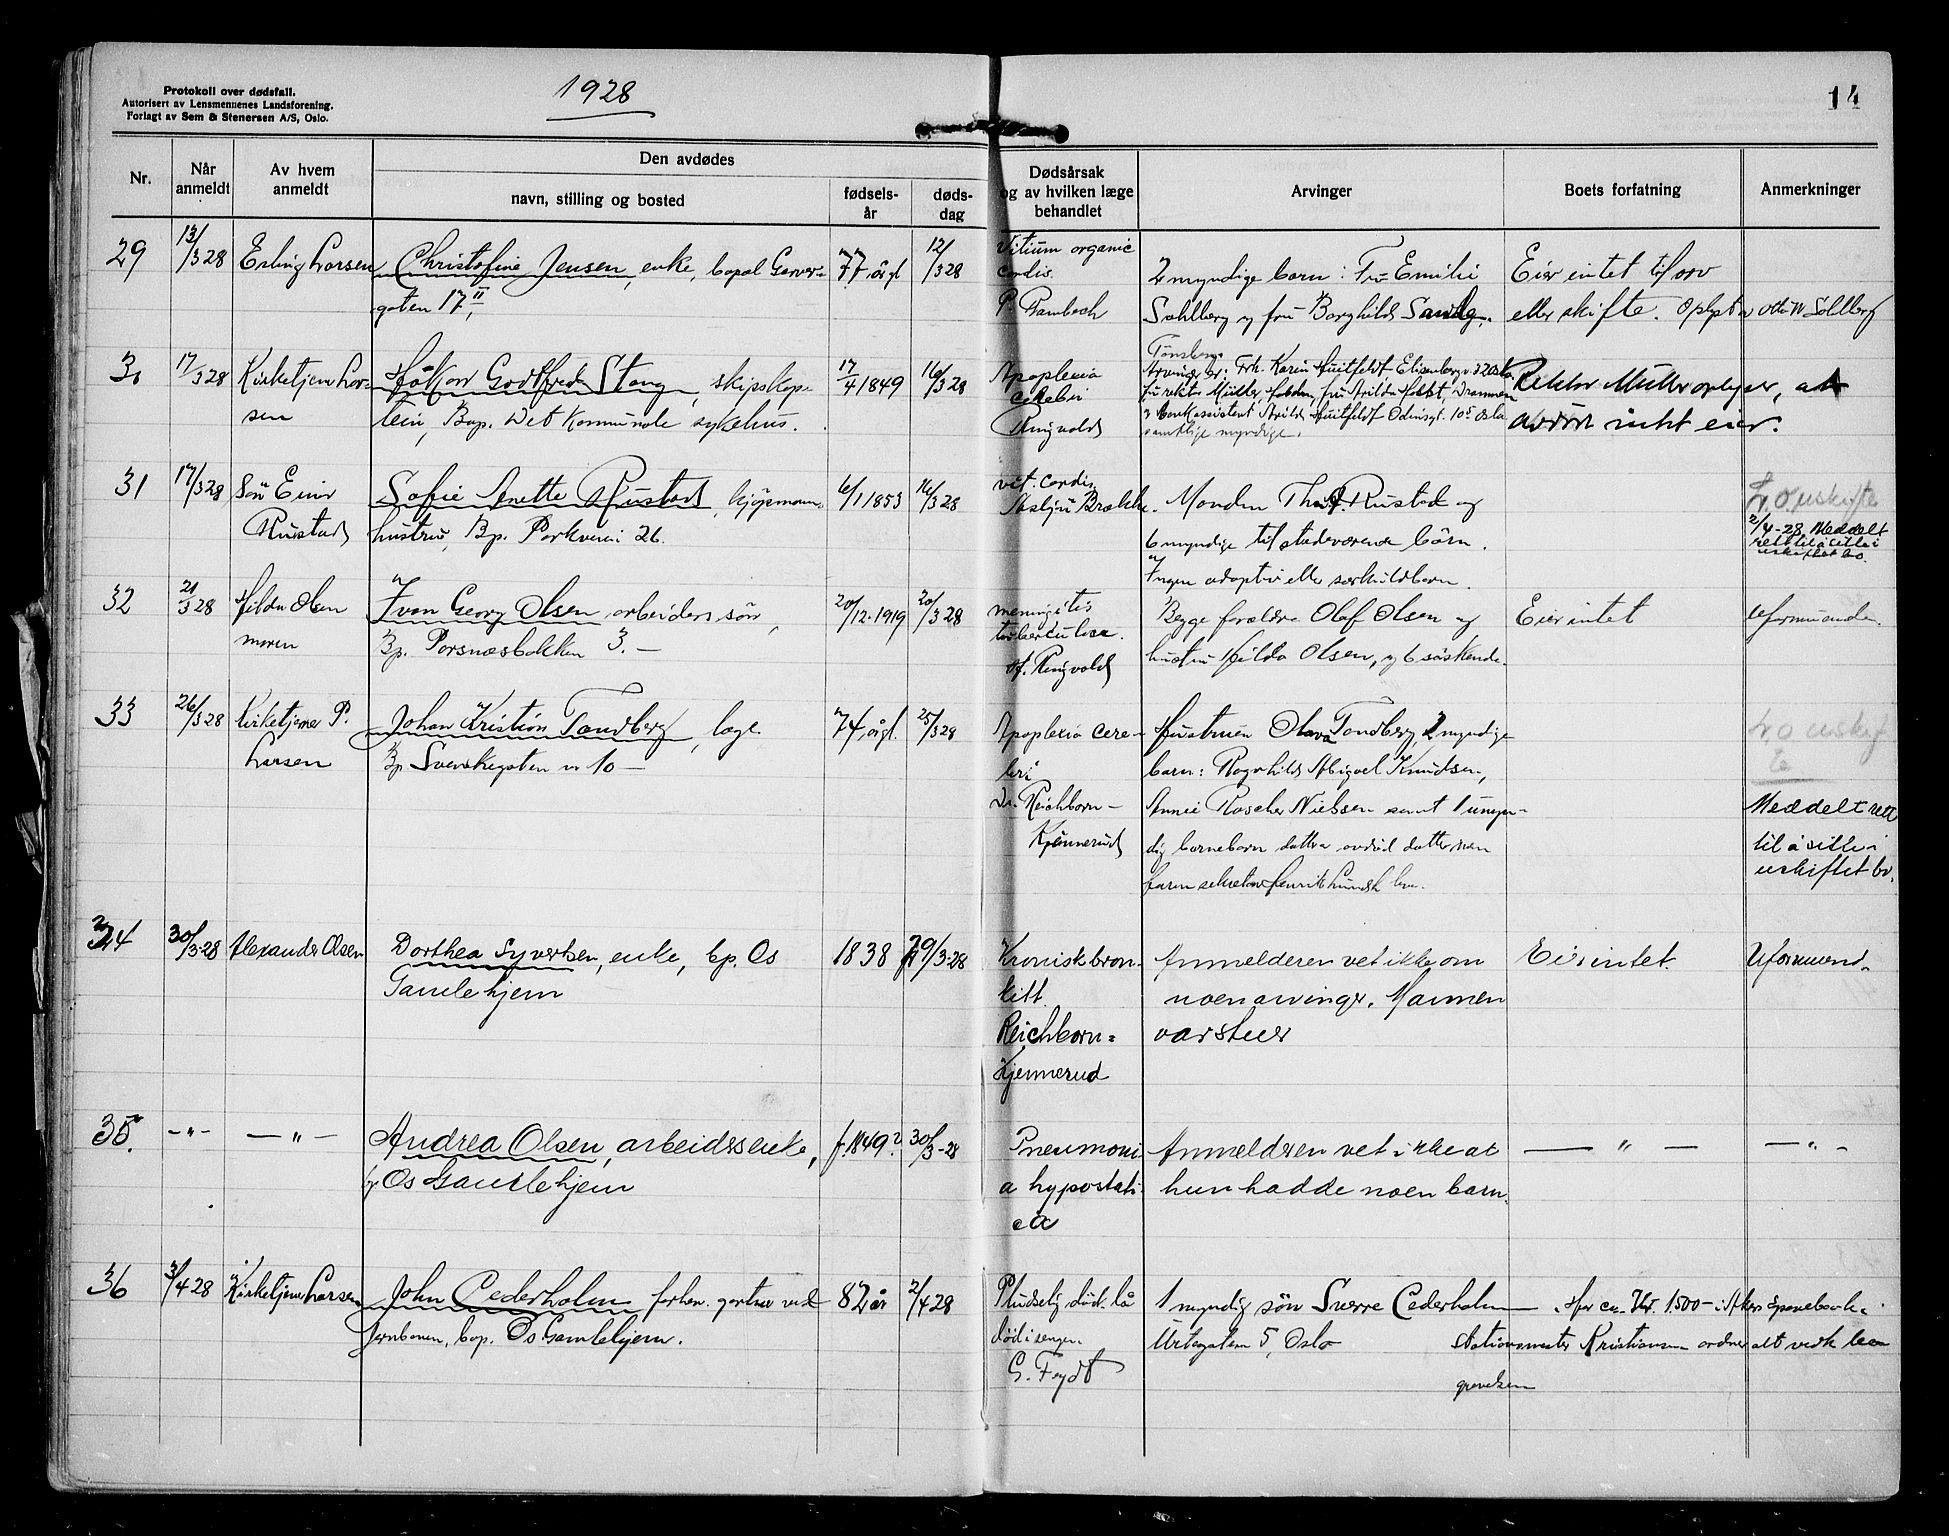 Protokoll over dødsfall.
Autorisert av Lensmennenes Landsforening.
Forlagt av Sem & Stenersen A/S, Oslo.
1928
14
Nr.
Når anmeldt
Av hvem anmeldt
Den avdødes
navn, stilling og bosted
fødsels-år
døds-dag
Dødsårsak og av hvilken læge behandlet
Arvinger
Boets forfatning
Anmerkninger
29 13/3 28 Erling Larsen Christofine Jensen, enke, bopal Garver- 77 årgl 12/3 28 Vitium organic
gaten 17 II, cordis. 2 myndige barn: Fru Emilie Eier intet til arv
P. Sahlberg og fru Borghild eller skifte.
17/3 28 Kirketjener Lar- Håkon Godtfred Stang, skipskap- 17/4 1849 16/3 28 Apoplexia
sen tein, Bop. Det Kommunale sykehus. cerebri
Ringvold
Tønsberg.
Arvinger er: Frk. Karin Huitfeldt
Drammen
Arild Huitfeldt Odinsgt. 10 Oslo
samtlige myndige.
Rektor Müller oplyser, at
avdøde intet eier.
31 17/3 28 Søn Einar Sofie Anette Rustad, kjøpmann- 6/1 1853 16/3 28 vit. cordis.
Rustad hustru, Bp. Parkveien 26.
Manden Th. Rustad og
6 myndige tilstedeværende børn.
Ingen adoptiv eller særkuldbarn.
2/4-28 Meddelt
rett til å sitte i
uskiftet bo.
32 21/3 28 Hilda Olsen Ivan Georg Olsen arbeiders søn, 20/12.1919 20/3 28 meningitis Begge forældre Olaf Olsen og Eier intet Uformuende.
moren Bp. Porsnæsbakken 3. — tuberculosa. hustru Hilda Olsen, og 6 søskende.
Ringvold
33 26/3 28 Kirketjener P. Johan Kristian Tandberg, læge 74, årgl. 25/3 28 Apoplexia cere- Hustruen Olava Tandberg, 2 myndige
Larsen Bp Svenskegaten nr 10 — bri barn: Ragnhild Abigael Knudsen,
Dr. Reichborn- Annie Roscher Nielsen samt 1 umyn-
Kjennerud dig barnebarn datter av død datter
Meddelt rett
til å sitte i
uskiftet bo.
34 30/3-28 Alexander Olsen Dorthea Syvertsen, enke, bp. Os 1838 29/3-28 Kronisk bron- Anmelderen vet ikke om Eier intet. Uformuend.
Gamlehjem kitt. noen arvinger. Mannen
Reichborn- var stuer
Kjennerud
35. —"— —"— Andrea Olsen, arbeidsenke, f. 1849? 30/3-28 Pneumoni- Anmelderen vet ikke at —"— —"—
bp Os Gamlehjem a hypostati- hun hadde noen barn.
ca
36 3/4 28 Kirketjener Larsen John Cederholm forhen. gartner ved 82 år 2/4 28 Pludselig død. lå 1 myndig søn Sverre Cederholm Har ca. Kr. 1500— i Akers Sparebank.
Jernbanen, bop. Os Gamlehjem. død i sengen. Urtegaten 5, Oslo Stationsmester Kristiansen ordner alt vedk be-
G. Feydt gravelsen